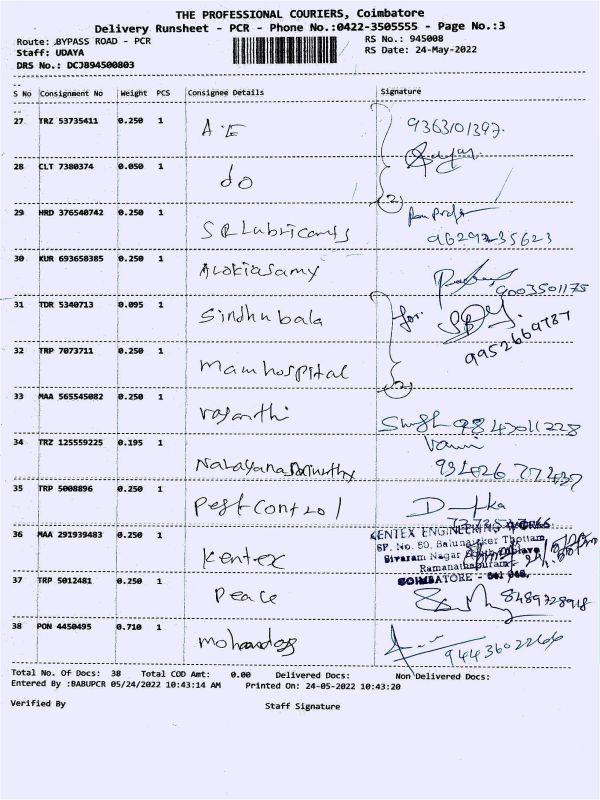 THE PROFESSIONAL COURIERS, Coimbatore
Delivery Runsheet - PCR - Phone No.:0422-3505555 - Page No.:3
Route: BYPASS ROAD - PCR RS No.: 945008
Staff: UDAYA RS Date: 24-May-2022
DRS No.: DCJ894500803
S No Consignment No Weight PCS Consignee Details Signature
27 TRZ 53735411 0.250 1 A.E 9363101397
28 CLT 7380374 0.050 1 do 2
29 HRD 376540742 0.250 1 SR Lubricants
9629235623
30 KUR 693658385 0.250 1 Arokiasamy 9003501175
31 TDR 5340713 0.095 1 Sindhubala for
9952669787
32 TRP 7073711 0.250 1 mamhospital 2
33 MAA 565545082 0.250 1 vasanthi
34 TRZ 125559225 0.195 1 Narayanamurthy
35 TRP 5008896 0.250 1 Pest Control
36 MAA 291939483 0.250 1 Kentex
KENTEX ENGINEERING WORKS
SF. No. 50, Balunaicker Thottam
Sivaram Nagar
Ramanathapuram
COIMBATORE - 641 045.
37 TRP 5012481 0.250 1 Peace 8489728918
38 PON 4450495 0.710 1 mohandas
Total No. Of Docs: 38 Total COD Amt: 0.00 Delivered Docs: Non Delivered Docs:
Entered By :BABUPCR 05/24/2022 10:43:14 AM Printed On: 24-05-2022 10:43:20
Verified By Staff Signature